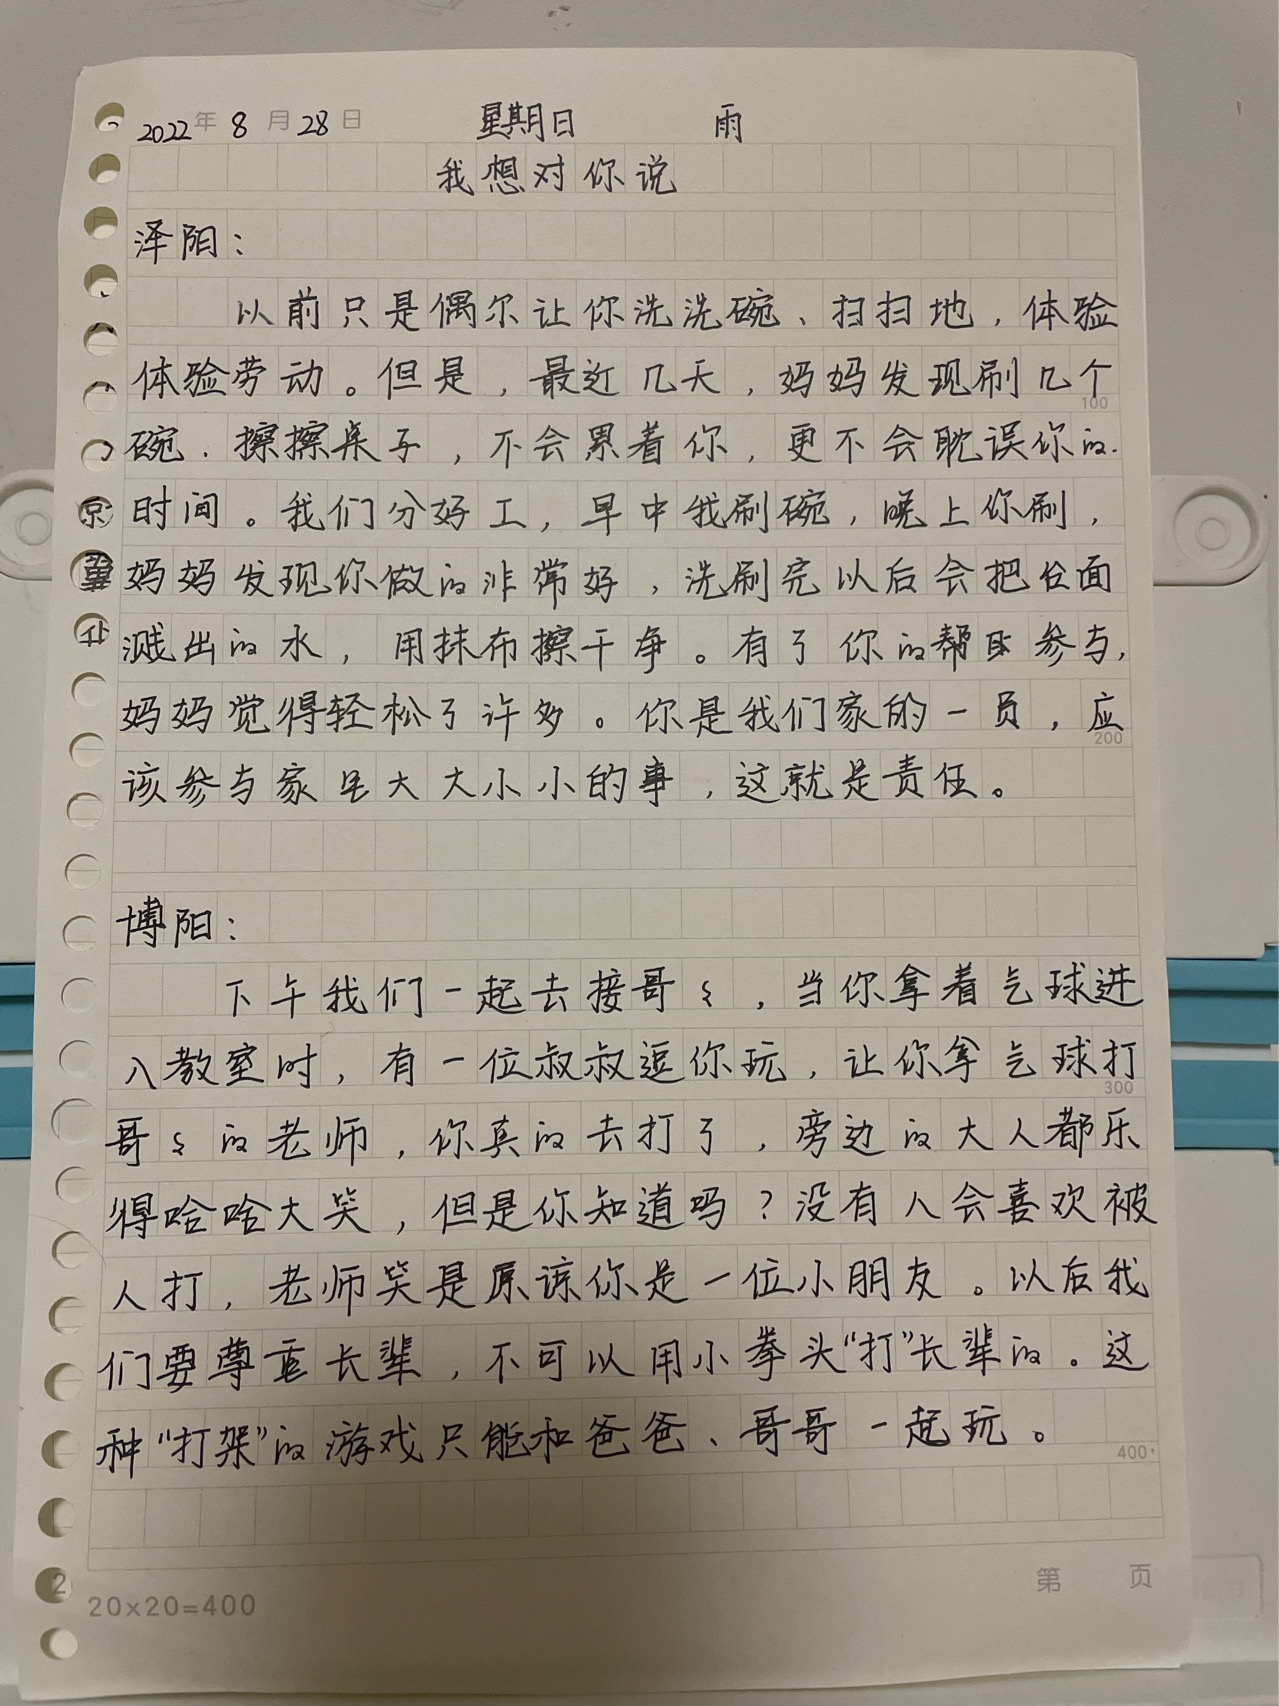 2022年8月28日 星期日 雨
我想对你说
泽阳：
以前只是偶尔让你洗洗碗、扫扫地，体验
体验劳动。但是，最近几天，妈妈发现刷几个
100
碗、擦擦桌子，不会累着你，更不会耽误你的
时间。我们分好工，早中我刷碗，晚上你刷，
妈妈发现你做的非常好，洗刷完以后会把台面
溅出的水，用抹布擦干净。有了你的帮助参与，
妈妈觉得轻松了许多。你是我们家的一员，应
200
该参与家里大大小小的事，这就是责任。
博阳：
下午我们一起去接哥々，当你拿着气球进
入教室时，有一位叔叔逗你玩，让你拿气球打
300
哥々的老师，你真的去打了，旁边的大人都乐
得哈哈大笑，但是你知道吗？没有人会喜欢被
人打，老师笑是原谅你是一位小朋友。以后我
们要尊重长辈，不可以用小拳头“打”长辈的。这
种“打架”的游戏只能和爸爸、哥哥一起玩。
400
第 页
20×20=400